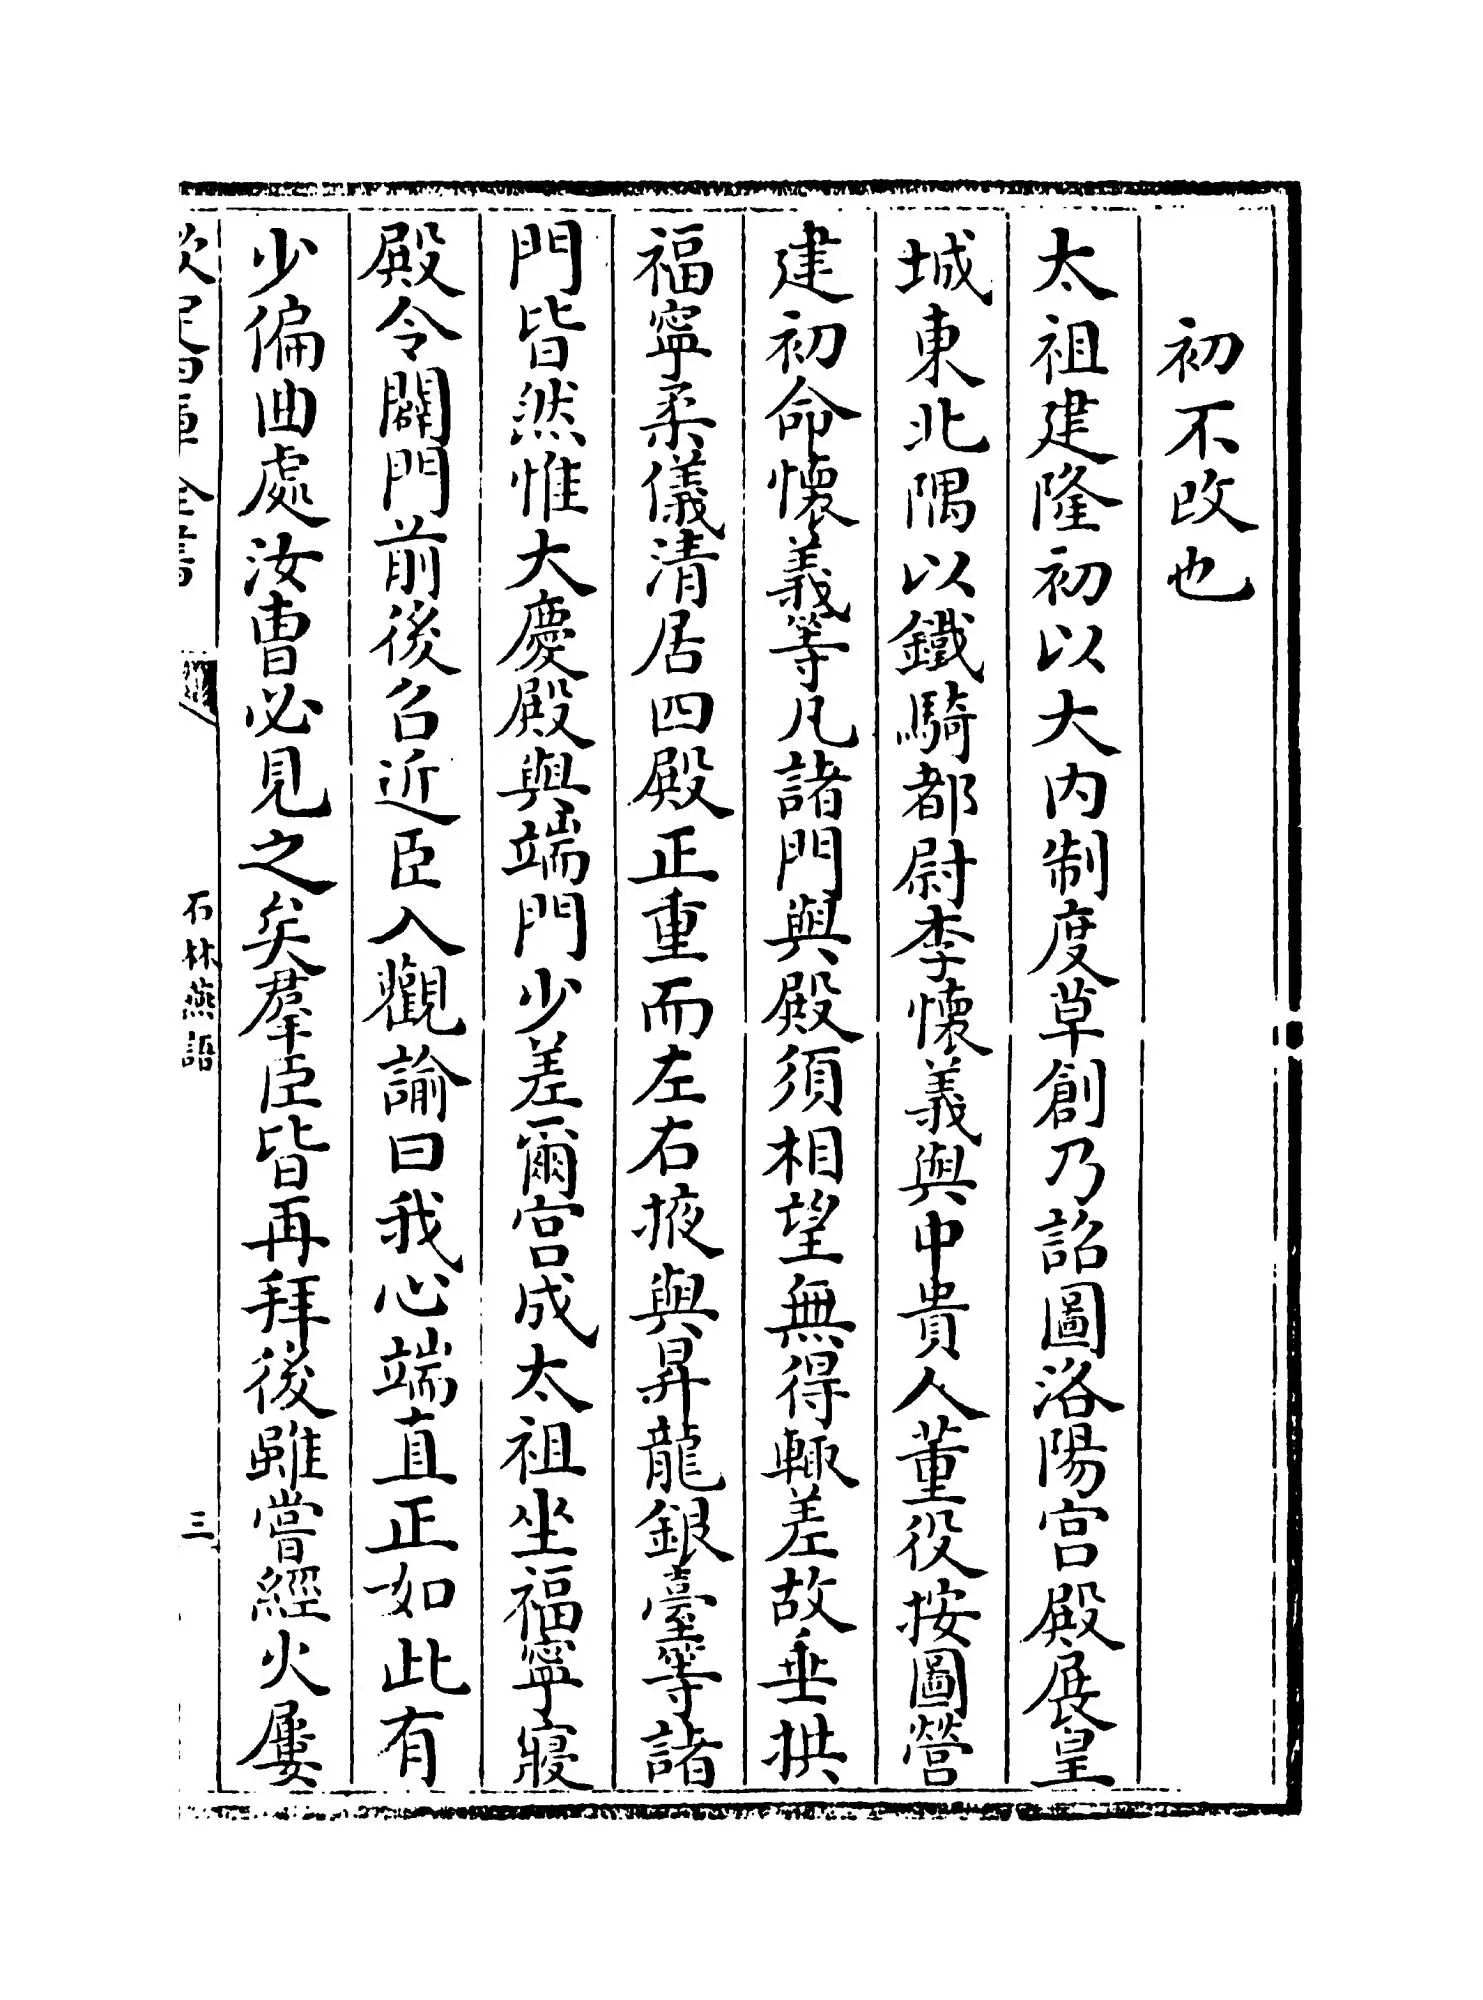 初不改也
太祖建隆初以大内制度草創乃詔圖洛陽宫殿展皇
城東北隅以鐵騎都尉李懷義與中貴人董役按圖營
建初命懷義等凡諸門與殿須相望無得輒差故垂拱
福寧柔儀清居四殿正重而左右掖與昇龍銀臺等諸
門皆然惟大慶殿與端門少差爾宫成太祖坐福寧寢
殿令闢門前後召近臣入觀諭曰我心端直正如此有
少偏曲處汝曹必見之矣羣臣皆再拜後雖嘗經火屢
欽定四庫全書
石林燕語
三